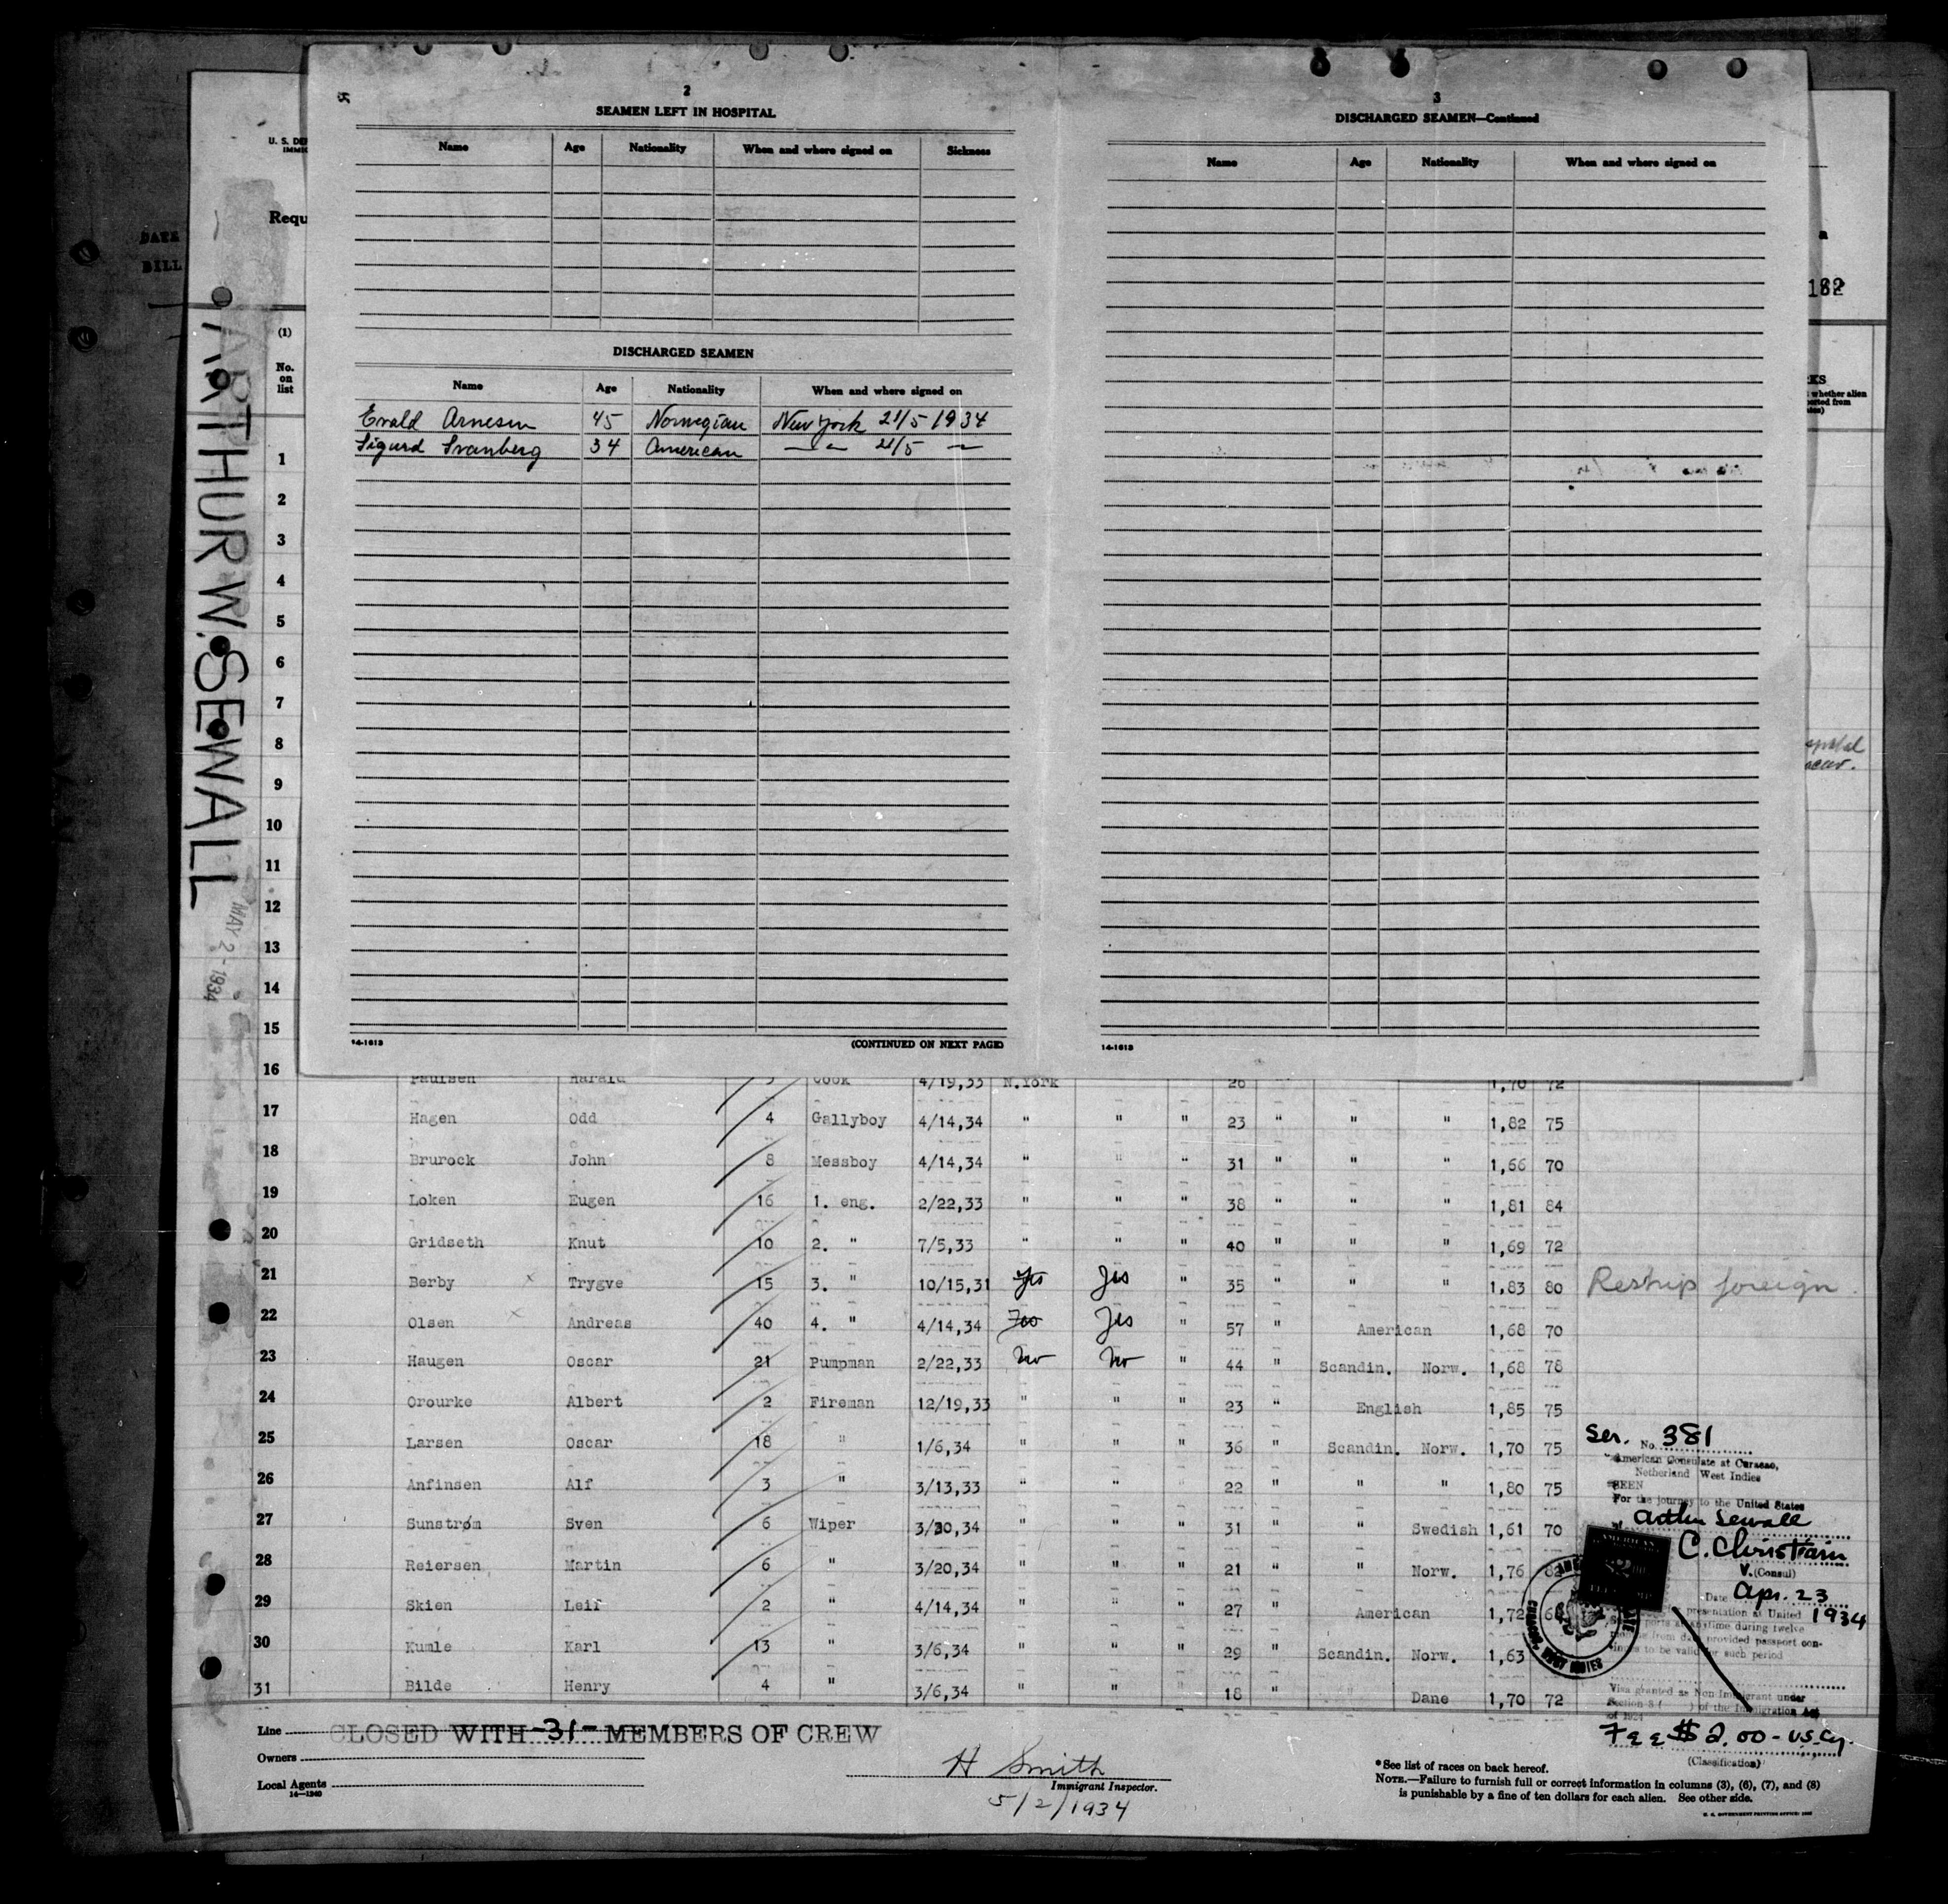 2
SEAMEN LEFT IN HOSPITAL
Name Age Nationality When and where signed on Sickness
DISCHARGED SEAMEN
Name Age Nationality When and where signed on
Evald Arnesen 45 Norwegian New York 21/5 1934
Sigurd Svanberg 34 American — " — 21/5 —
14-1613
(CONTINUED ON NEXT PAGE)
3
DISCHARGED SEAMEN—Continued
Name Age Nationality When and where signed on
14-1613
DATE
BILL
Requ
ARTHUR W. SEWALL
MAY 2 - 1934
(1)
No. on list
1
2
3
4
5
6
7
8
9
10
11
12
13
14
15
16 Paulsen Harald 5 Cook 4/19,33 N.York " 26 1,70 72
17 Hagen Odd 4 Gallyboy 4/14,34 " " " 23 " " " 1,82 75
18 Brurock John 8 Messboy 4/14,34 " " " 31 " " " 1,66 70
19 Loken Eugen 16 1. eng. 2/22,33 " " " 38 " " " 1,81 84
20 Gridseth Knut 10 2. " 7/5,33 " " " 40 " " " 1,69 72
21 Berby x Trygve 15 3. " 10/15,31 Yes Yes " 35 " " " 1,83 80 Reship foreign
22 Olsen x Andreas 40 4. " 4/14,34 Yes Yes " 57 " American 1,68 70
23 Haugen Oscar 21 Pumpman 2/22,33 No No " 44 " Scandin. Norw. 1,68 78
24 Orourke Albert 2 Fireman 12/19,33 " " " 23 " English 1,85 75
25 Larsen Oscar 18 " 1/6,34 " " " 36 " Scandin. Norw. 1,70 75
26 Anfinsen Alf 3 " 3/13,33 " " " 22 " " " 1,80 75
27 Sunstrøm Sven 6 Wiper 3/20,34 " " " 31 " " Swedish 1,61 70
28 Reiersen Martin 6 " 3/20,34 " " " 21 " " Norw. 1,76 82
29 Skien Leif 2 " 4/14,34 " " " 27 " American 1,72
30 Kumle Karl 13 " 3/6,34 " " " 29 " Scandin. Norw. 1,63
31 Bilde Henry 4 " 3/6,34 " " " 18 " " Dane 1,70 72
Ser. No. 381
American Consulate at Curacao,
Netherland West Indies
SEEN
For the journey to the United States
Arthur Sewall
C. Christian
V. (Consul)
Date Apr. 23 1934
presentation at United
ports at any time during twelve
months from date provided passport con-
tinues to be valid for such period
Visa granted as Non-Immigrant under
Section 3 ( ) of the Immigration Act
of 1924
Fee $2.00 - US. Cy.
(Classification)
Line
CLOSED WITH -31- MEMBERS OF CREW
Owners
Local Agents
14—1240
H Smith
Immigrant Inspector.
5/2/1934
*See list of races on back hereof.
NOTE.—Failure to furnish full or correct information in columns (3), (6), (7), and (8)
is punishable by a fine of ten dollars for each alien. See other side.